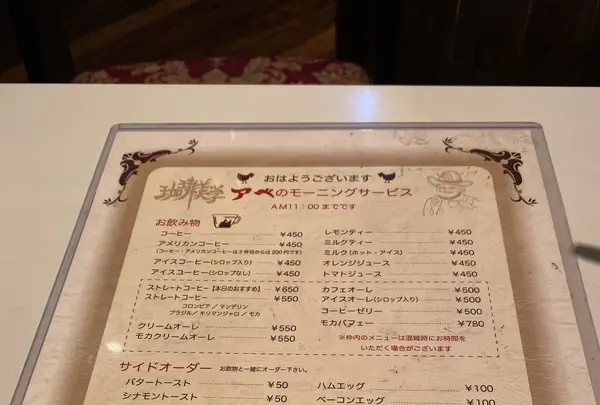 おはようございます
珈琲美学 アベのモーニングサービス
AM11:00までです
お飲み物
コーヒー ¥450
アメリカンコーヒー ¥450
(コーヒー・アメリカンコーヒーは2杯目からは200円です)
アイスコーヒー(シロップ入り) ¥450
アイスコーヒー(シロップなし) ¥450
ストレートコーヒー【本日のおすすめ】 ¥650
ストレートコーヒー ¥550
コロンビア/マンデリン
ブラジル/キリマンジャロ/モカ
クリームオーレ ¥550
モカクリームオーレ ¥550
レモンティー ¥450
ミルクティー ¥450
ミルク(ホット・アイス) ¥450
オレンジジュース ¥450
トマトジュース ¥450
カフェオーレ ¥500
アイスオーレ(シロップ入り) ¥500
コーヒーゼリー ¥500
モカパフェー ¥780
※枠内のメニューは混雑時にお時間を
いただく場合がございます
サイドオーダー お飲物と一緒にオーダー下さい。
バタートースト ¥50
シナモントースト ¥50
ハムエッグ ¥100
ベーコンエッグ ¥100